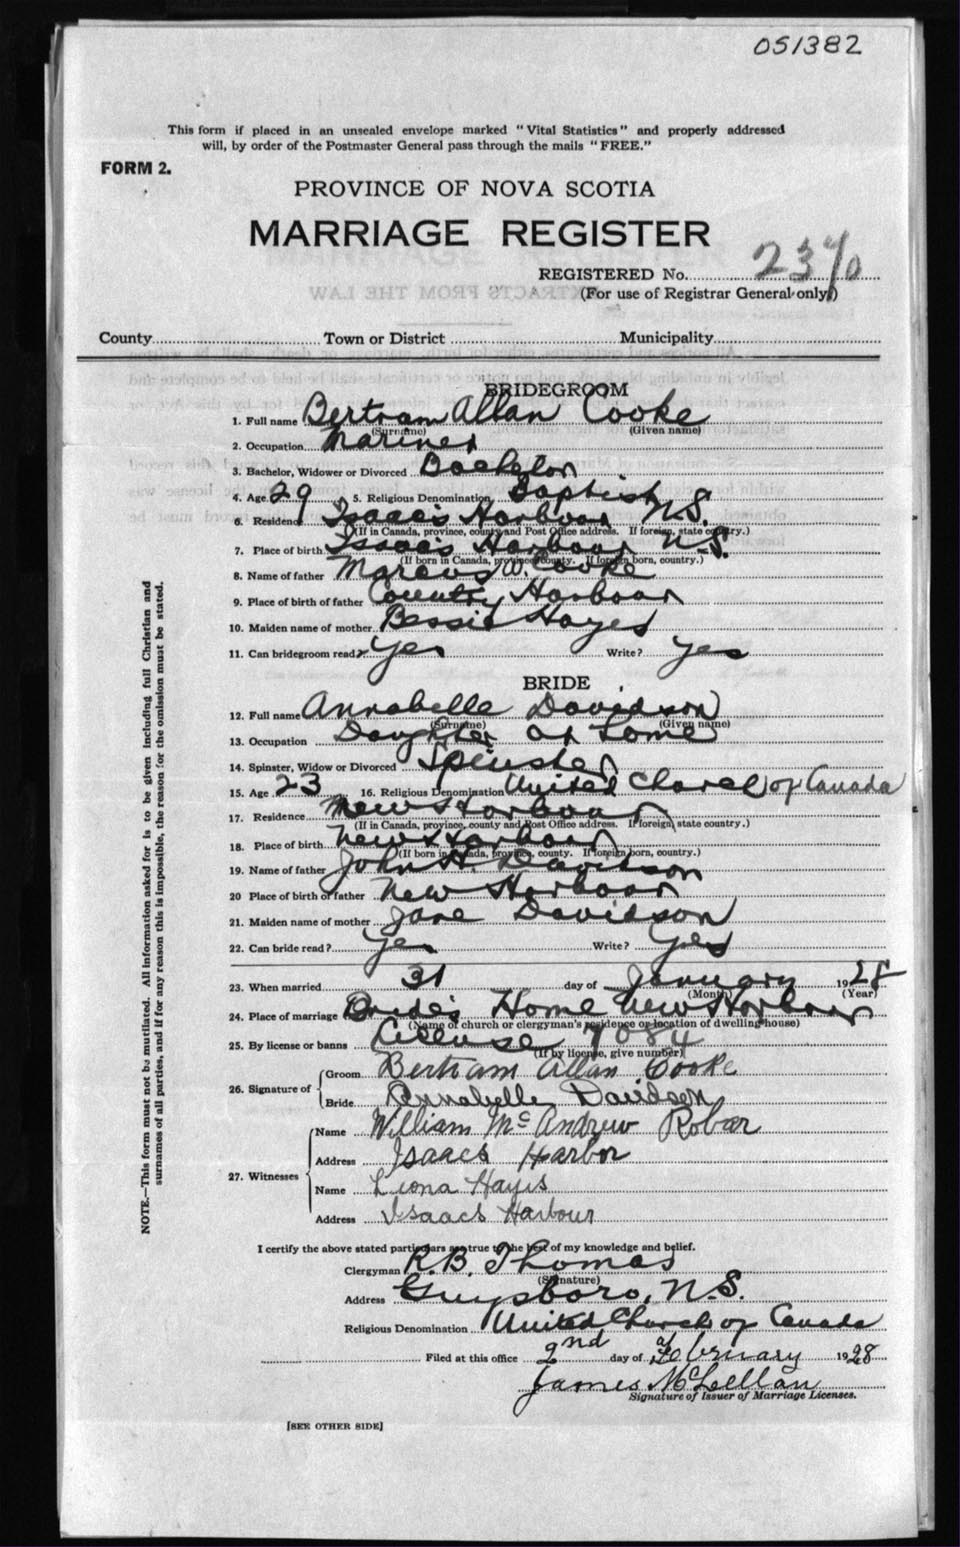 051382
This form if placed in an unsealed envelope marked "Vital Statistics" and properly addressed
will, by order of the Postmaster General pass through the mails "FREE."
FORM 2.
PROVINCE OF NOVA SCOTIA
MARRIAGE REGISTER
REGISTERED No.
(For use of Registrar General only)
County Town or District Municipality
BRIDEGROOM
1. Full name Bertram Allan Cooke
(Surname) (Given name)
2. Occupation Mariner
3. Bachelor, Widower or Divorced Bachelor
4. Age 29 5. Religious Denomination Baptist
6. Residence Isaac's Harbour N.S.
(If in Canada, province, county and Post Office address. If foreign, state country.)
7. Place of birth Isaac's Harbour N.S.
(If born in Canada, province, county. If foreign born, country.)
8. Name of father Marcus W. Cooke
9. Place of birth of father Country Harbour
10. Maiden name of mother Bessie Hayes
11. Can bridegroom read? Yes Write? Yes
BRIDE
12. Full name Annabelle Davidson
(Surname) (Given name)
13. Occupation Daughter at home
14. Spinster, Widow or Divorced Spinster
15. Age 23 16. Religious Denomination United Church of Canada
17. Residence New Harbour
(If in Canada, province, county and Post Office address. If foreign, state country.)
18. Place of birth New Harbour
(If born in Canada, province, county. If foreign born, country.)
19. Name of father John H. Davidson
20 Place of birth of father New Harbour
21. Maiden name of mother Jane Davidson
22. Can bride read? Yes Write? Yes
23. When married 31 day of January 1928
(Month) (Year)
24. Place of marriage Bride's Home New Harbour
(Name of church or clergyman's residence or location of dwelling house)
25. By license or banns License 7084
(If by license, give number)
26. Signature of
Groom Bertram Allan Cooke
Bride Annabelle Davidson
27. Witnesses
Name William McAndrew Robar
Address Isaacs Harbor
Name Liona Hayes
Address Isaacs Harbour
I certify the above stated particulars are true to the best of my knowledge and belief.
Clergyman R.B. Thomas
(Signature)
Address Guysboro, N.S.
Religious Denomination United Church of Canada
Filed at this office 2nd day of February 1928
James McLellan
Signature of Issuer of Marriage Licenses.
[SEE OTHER SIDE]
NOTE.—This form must not be mutilated. All information asked for is to be given including full Christian and
surnames of all parties, and if for any reason this is impossible, the reason for the omission must be stated.